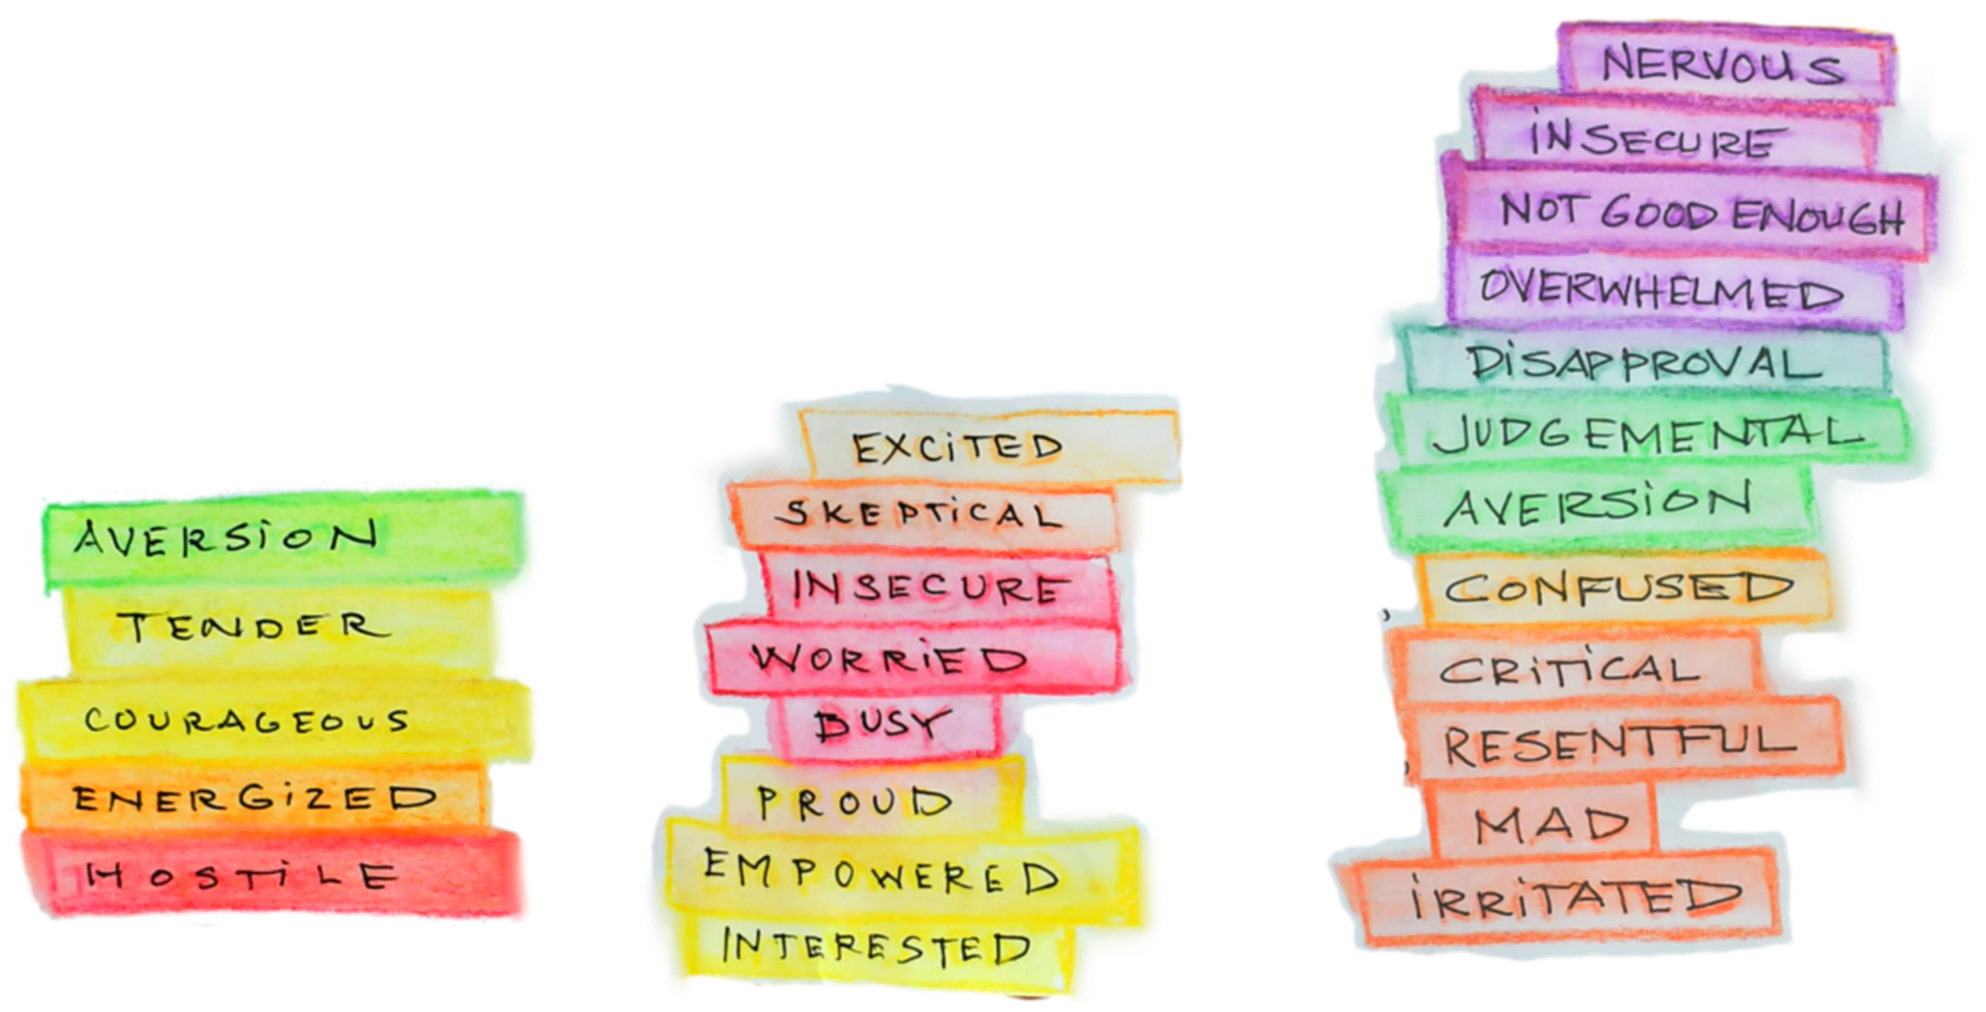 AVERSION
TENDER
COURAGEOUS
ENERGIZED
HOSTILE
EXCITED
SKEPTICAL
INSECURE
WORRIED
BUSY
PROUD
EMPOWERED
INTERESTED
NERVOUS
INSECURE
NOT GOOD ENOUGH
OVERWHELMED
DISAPPROVAL
JUDGEMENTAL
AVERSION
CONFUSED
CRITICAL
RESENTFUL
MAD
IRRITATED